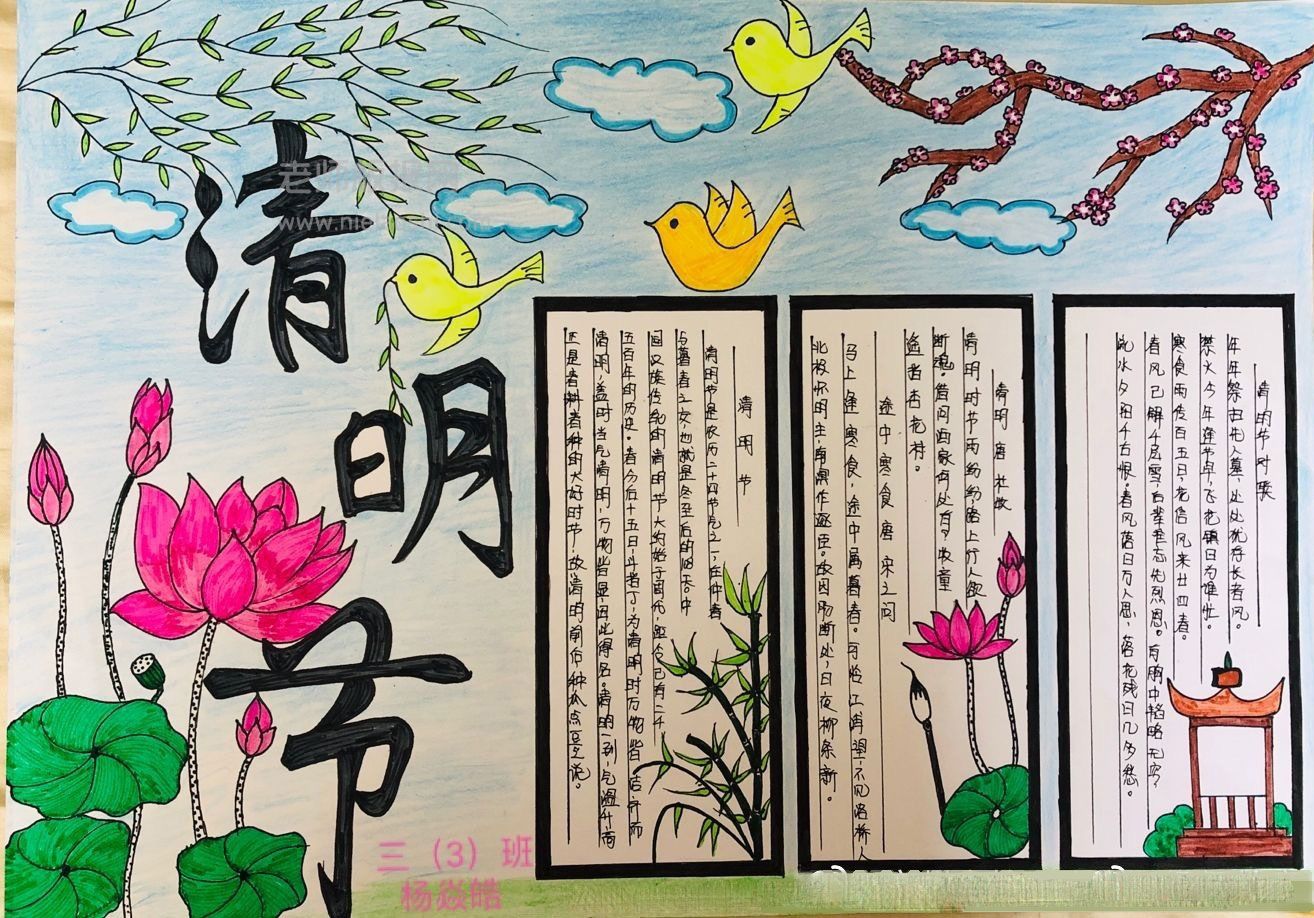 清明节
清明节
清明节是农历二十四节气之一,在仲春
与暮春之交,也就是冬至后的108天。中
国汉族传统的清明节大约始于周代,距今已有二千
五百年的历史。春分后十五日,斗指丁,为清明,时万物皆洁齐而
清明,盖时当气清明,万物皆显,因此得名。清明一到,气温升高
正是春耕春种的大好时节,故清明前后种瓜点豆之说。
清明 唐 杜牧
清明时节雨纷纷路上行人欲
断魂。借问酒家何处有?牧童
遥指杏花村。
途中寒食 唐 宋之问
马上逢寒食,途中属暮春。可怜江浦望,不见洛桥人
北极怀明主,南溟作逐臣。故园肠断处,日夜柳条新。
清明节对联
年年祭扫先人墓,处处犹存长者风。
禁火今年逢节早,飞花镇日为谁忙。
寒食雨传百五日,花信风来廿四春。
春风已解千层雪,后辈难忘先烈恩。有胸中韬略无穷,
流水夕阳千古恨,春风落日万人思,落花残日几多愁。
三(3)班
杨焱皓